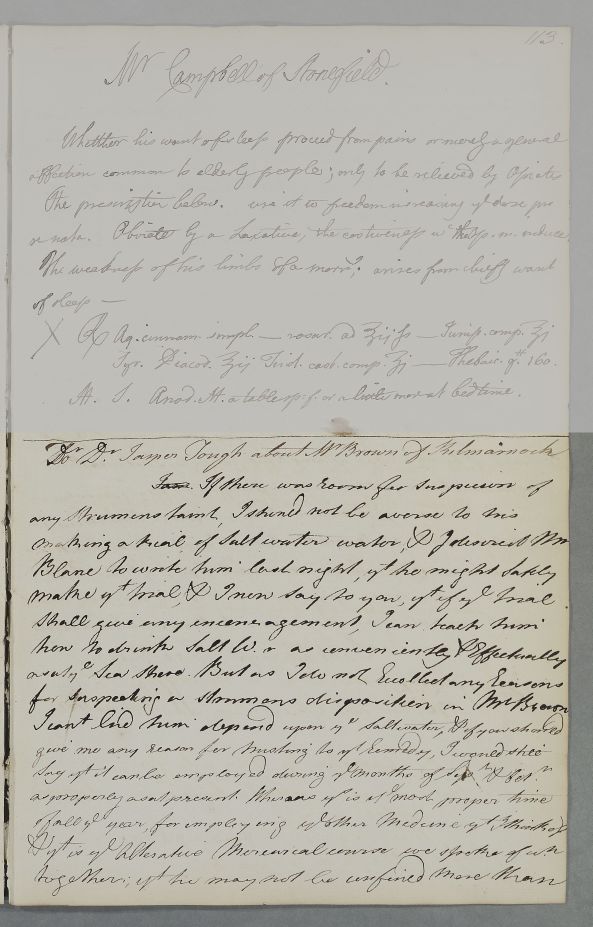 113.
Mr Campbell of Stonefield.
Whether his want of sleep proceed from pains or merely a general
affection common to elderly people; only to be relieved by Opiates
The prescription below. use it wt freedom increasing ye dose pro
re nata. Obviate by a Laxative, the costiveness wc this p. m. induce.
The weakness of his limbs of a morng. arises from chiefly want
of sleep —
X ℞ Aq. cinnam. simpl. — rosar. ad ʒij ſs — Junip. comp. ʒj
Syr. Diacod. ʒij Tinct. cast. comp. ʒj — Thebaic. gtt 160.
M. S. Anod. M. a tablesp. f. or a little more at bedtime.
Dor. Dr. Jasper Tough about Mr Brown of Kilmarnock
I am. If there was room for suspicion of
any Strumous taint, I should not be averse to his
making a trial of Salt water water, & I desired Mr
Blane to write him last night, yt he might safely
make yt trial, & I now say to you, yt if ye trial
shall give any encouragement, I can teach him
how to drink Salt W. r as conveniently & Effectually
as at ye Sea shore. But as I do not Recollect any Reasons
for suspecting a Strumous disposition in Mr Brown
I can't bid him depend upon ye Salt water, & if you should
give me any reason for trusting to yt Remedy, I would still
say yt it can be employed during ye months of Sepr & Octr
as properly as at present. Whereas ys is ye most proper time
of all ye year, for employing ye other Medicine yt I think of
& yt is ye Alterative Mercurial course we spoke of wn
together; yt he may not be confined more than